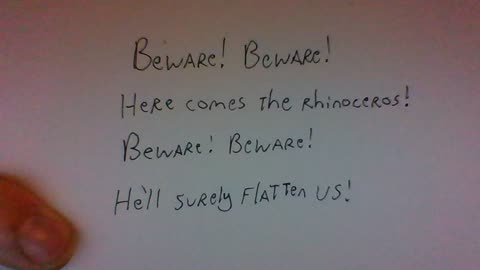 Beware! Beware!
Here comes the rhinoceros!
Beware! Beware!
He'll surely flatten us!